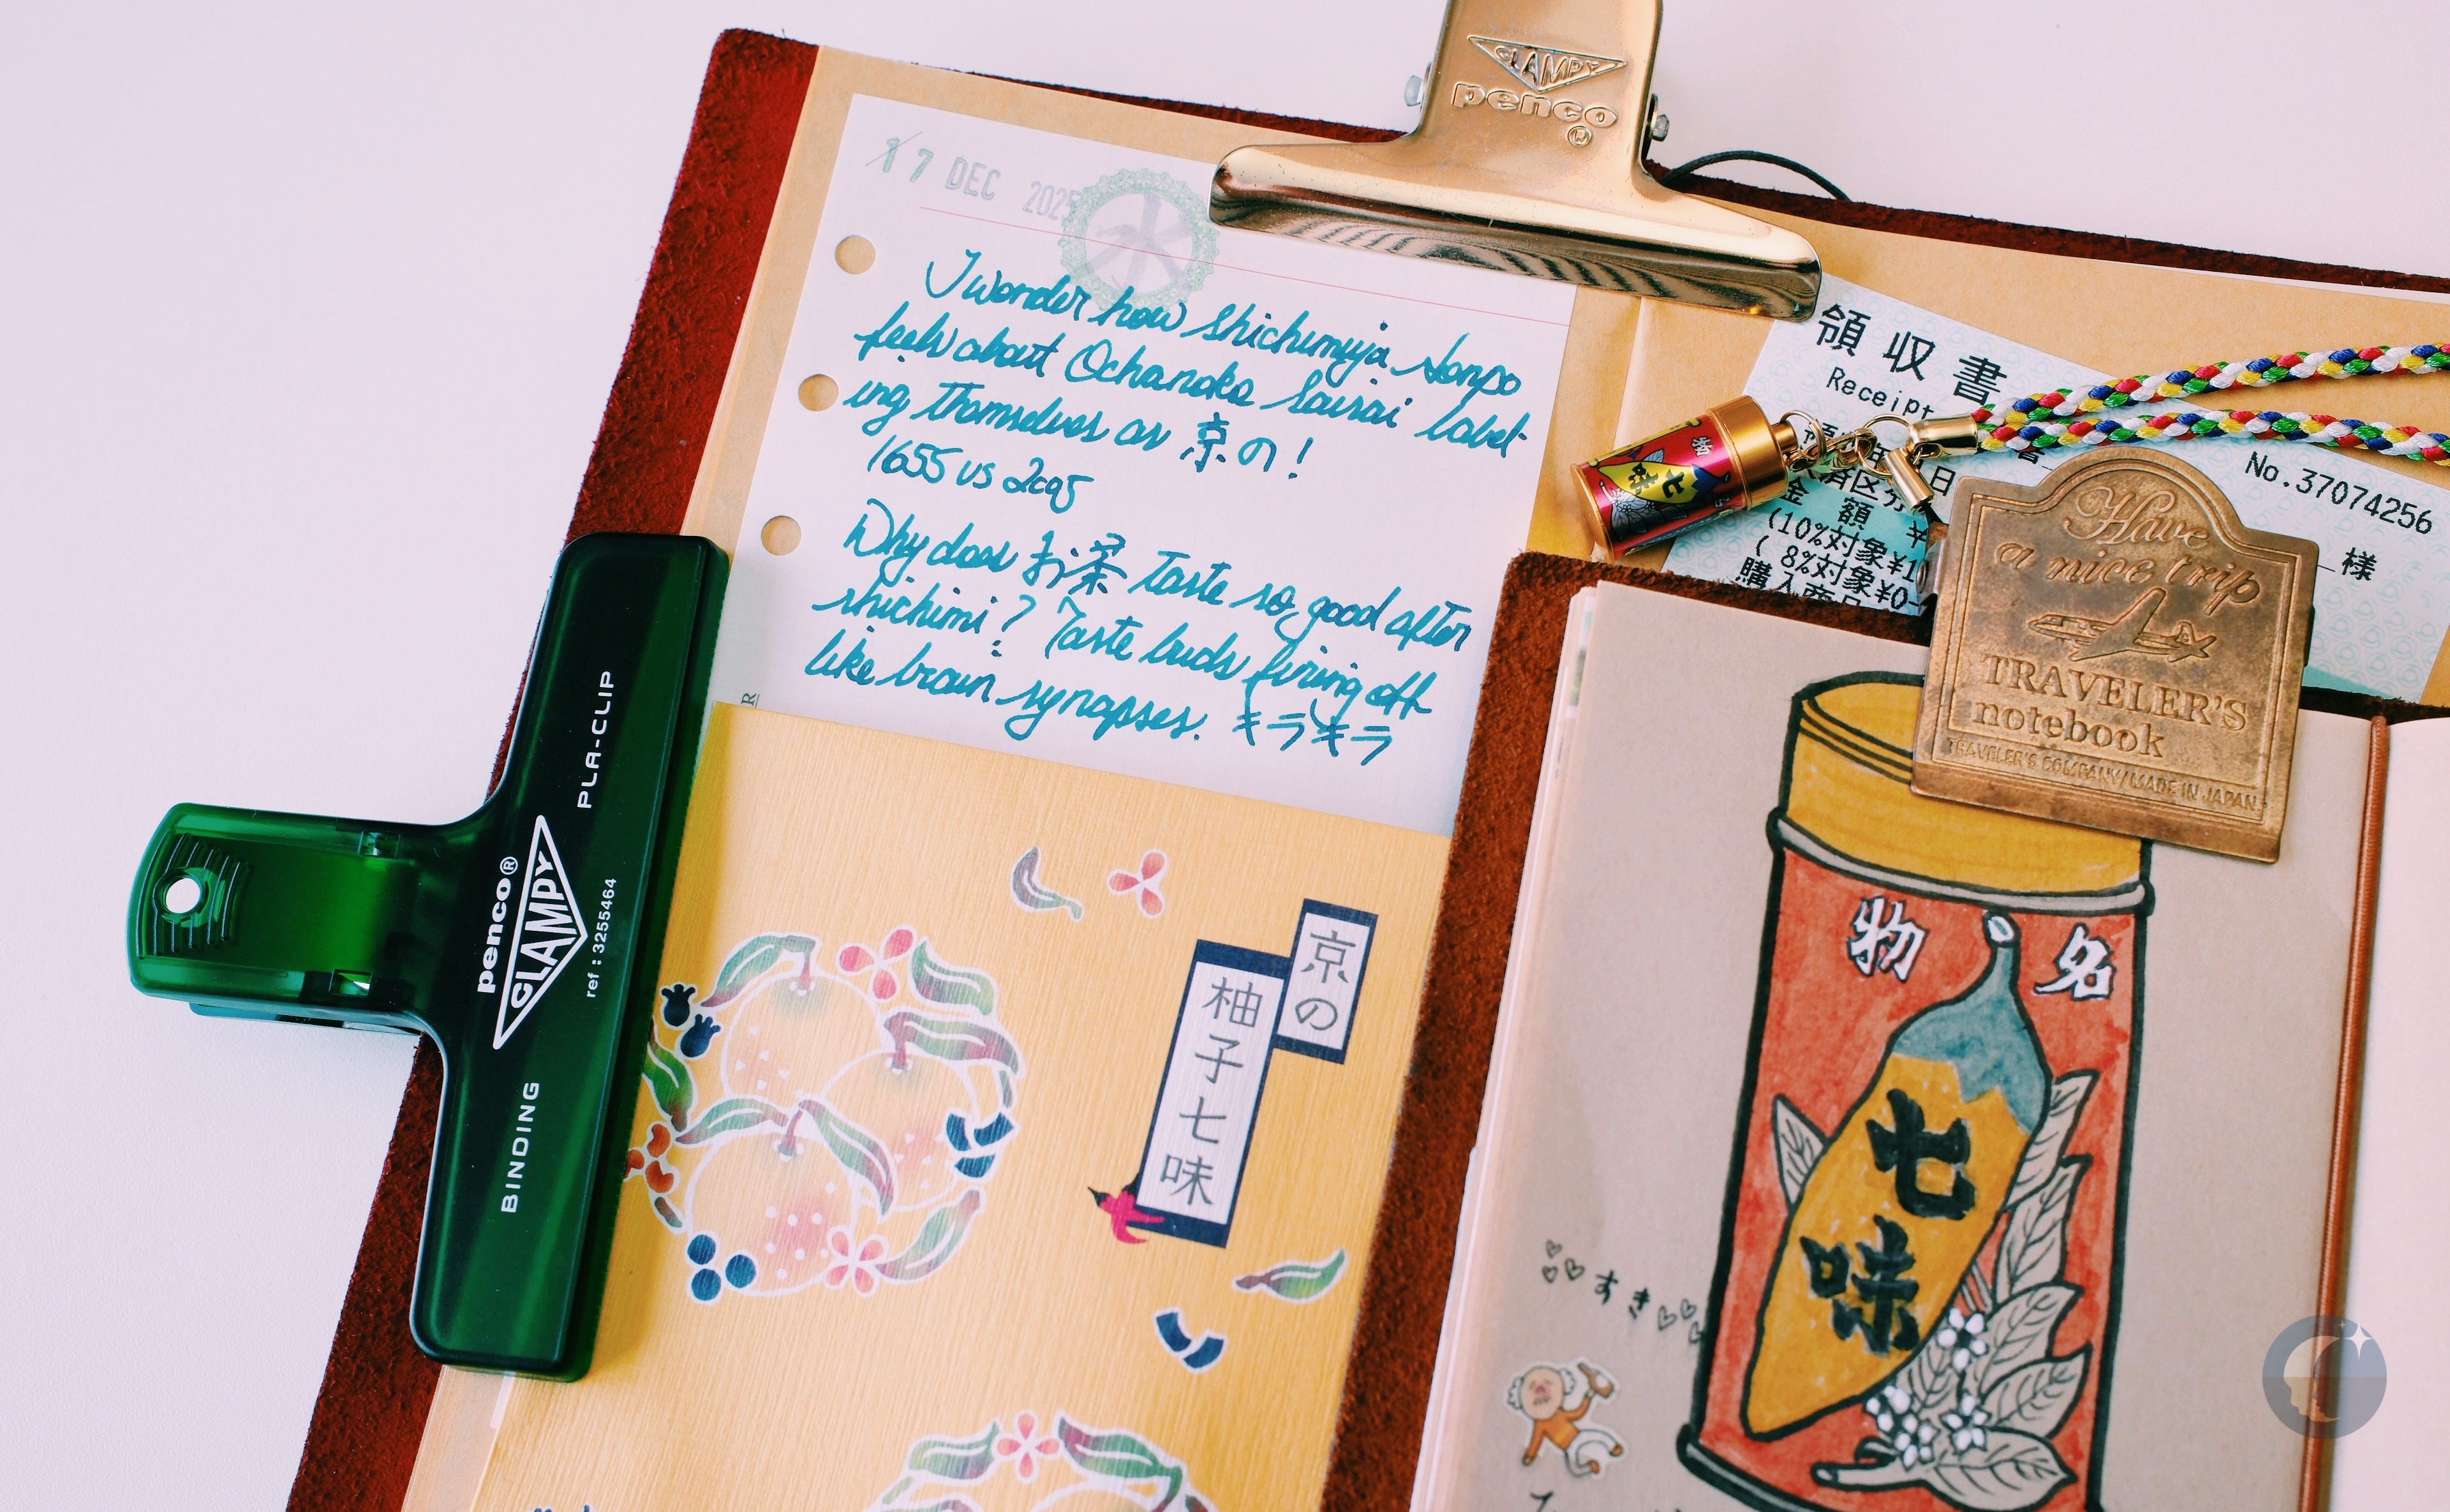 CLAMPY
penco
17 DEC 2025
水
I wonder how Shichimiya Honpo
feels about Ochanoko Saisai label-
ing themselves as 京の!
1655 vs
Why does お茶 taste so good after
shichimi? Taste buds firing off
like brain synapses. キラキラ
領収書
Receipt
No.37074256
様
金 額 ¥
(10%対象¥1
( 8%対象¥0
購入商品
七味
Have
a nice trip
TRAVELER'S
notebook
TRAVELER'S COMPANY/MADE IN JAPAN
PLA-CLIP
penco®
CLAMPY
ref : 3255464
BINDING
京の
柚子七味
名物
七味
すき